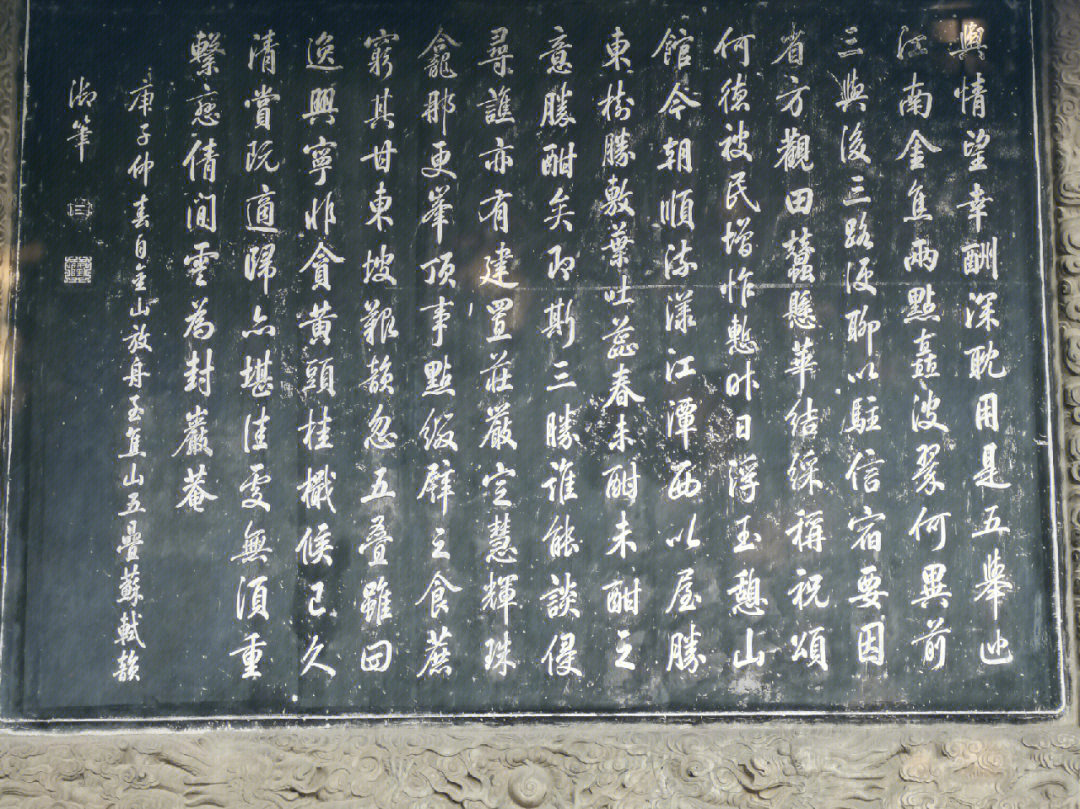 輿情望幸酬深耽用是五舉廵
江南金焦兩點矗波翠何異前
三與後三路便聊以駐信宿要因
省方觀田蠶懸華結綵稱祝頌
何德被民增怍慙昨日浮玉憩山
館今朝順流漾江潭西以屋勝
東樹勝敷葉吐蕊春未酣未酣之
意勝酣矣即斯三勝誰能談侵
尋譙亦有建置莊嚴定慧輝珠
龕那更峯頂事點綴辟之食蔗
窮其甘東坡艱韻忽五疊雖曰
逸興寧非貪黃頭桂檝候已久
清賞既適歸亦堪佳處無須重
繫戀倩閒雲為封巖菴
庚子仲春自金山放舟至焦山五疊蘇軾韻
御筆